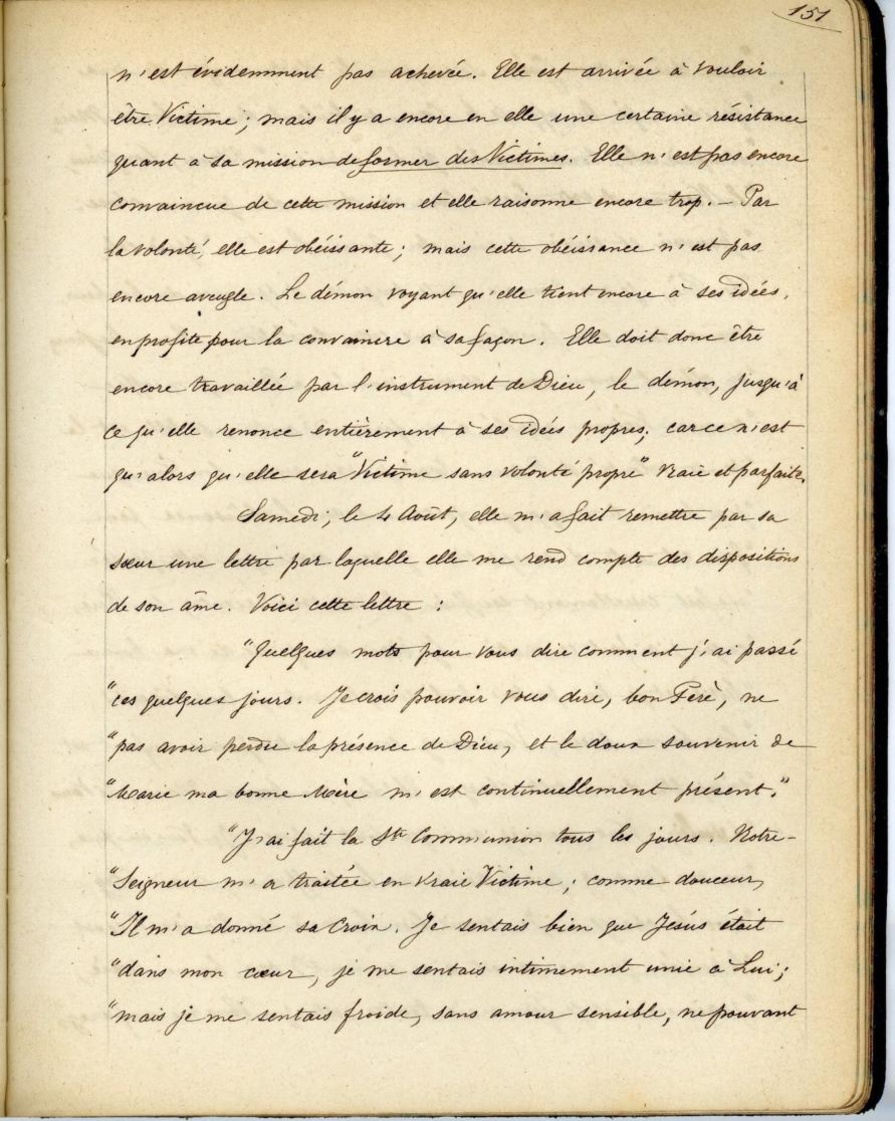 151
n'est évidemment pas achevée. Elle est arrivée à vouloir
être Victime; mais il y a encore en elle une certaine résistance
quant à sa mission de former des Victimes. Elle n'est pas encore
convaincue de cette mission et elle raisonne encore trop. — Par
la volonté, elle est obéissante; mais cette obéissance n'est pas
encore aveugle. Le démon voyant qu'elle tient encore à ses idées,
en profite pour la convaincre à sa façon. Elle doit donc être
encore travaillée par l'instrument de Dieu, le démon, jusqu'à
ce qu'elle renonce entièrement à ses idées propres; car ce n'est
qu'alors qu'elle sera "Victime sans volonté propre" vraie et parfaite.
Samedi, le 4 Août, elle m'a fait remettre par sa
sœur une lettre par laquelle elle me rend compte des dispositions
de son âme. Voici cette lettre :
"Quelques mots pour vous dire comment j'ai passé
"ces quelques jours. Je crois pouvoir vous dire, bon Père, ne
"pas avoir perdu la présence de Dieu, et le doux souvenir de
"Marie ma bonne Mère m'est continuellement présent."
"J'ai fait la Ste Communion tous les jours. Notre-
"Seigneur m'a traitée en vraie Victime; comme douceur,
"Il m'a donné sa Croix. Je sentais bien que Jésus était
"dans mon cœur, je me sentais intimement unie à Lui;
"mais je me sentais froide, sans amour sensible, ne pouvant